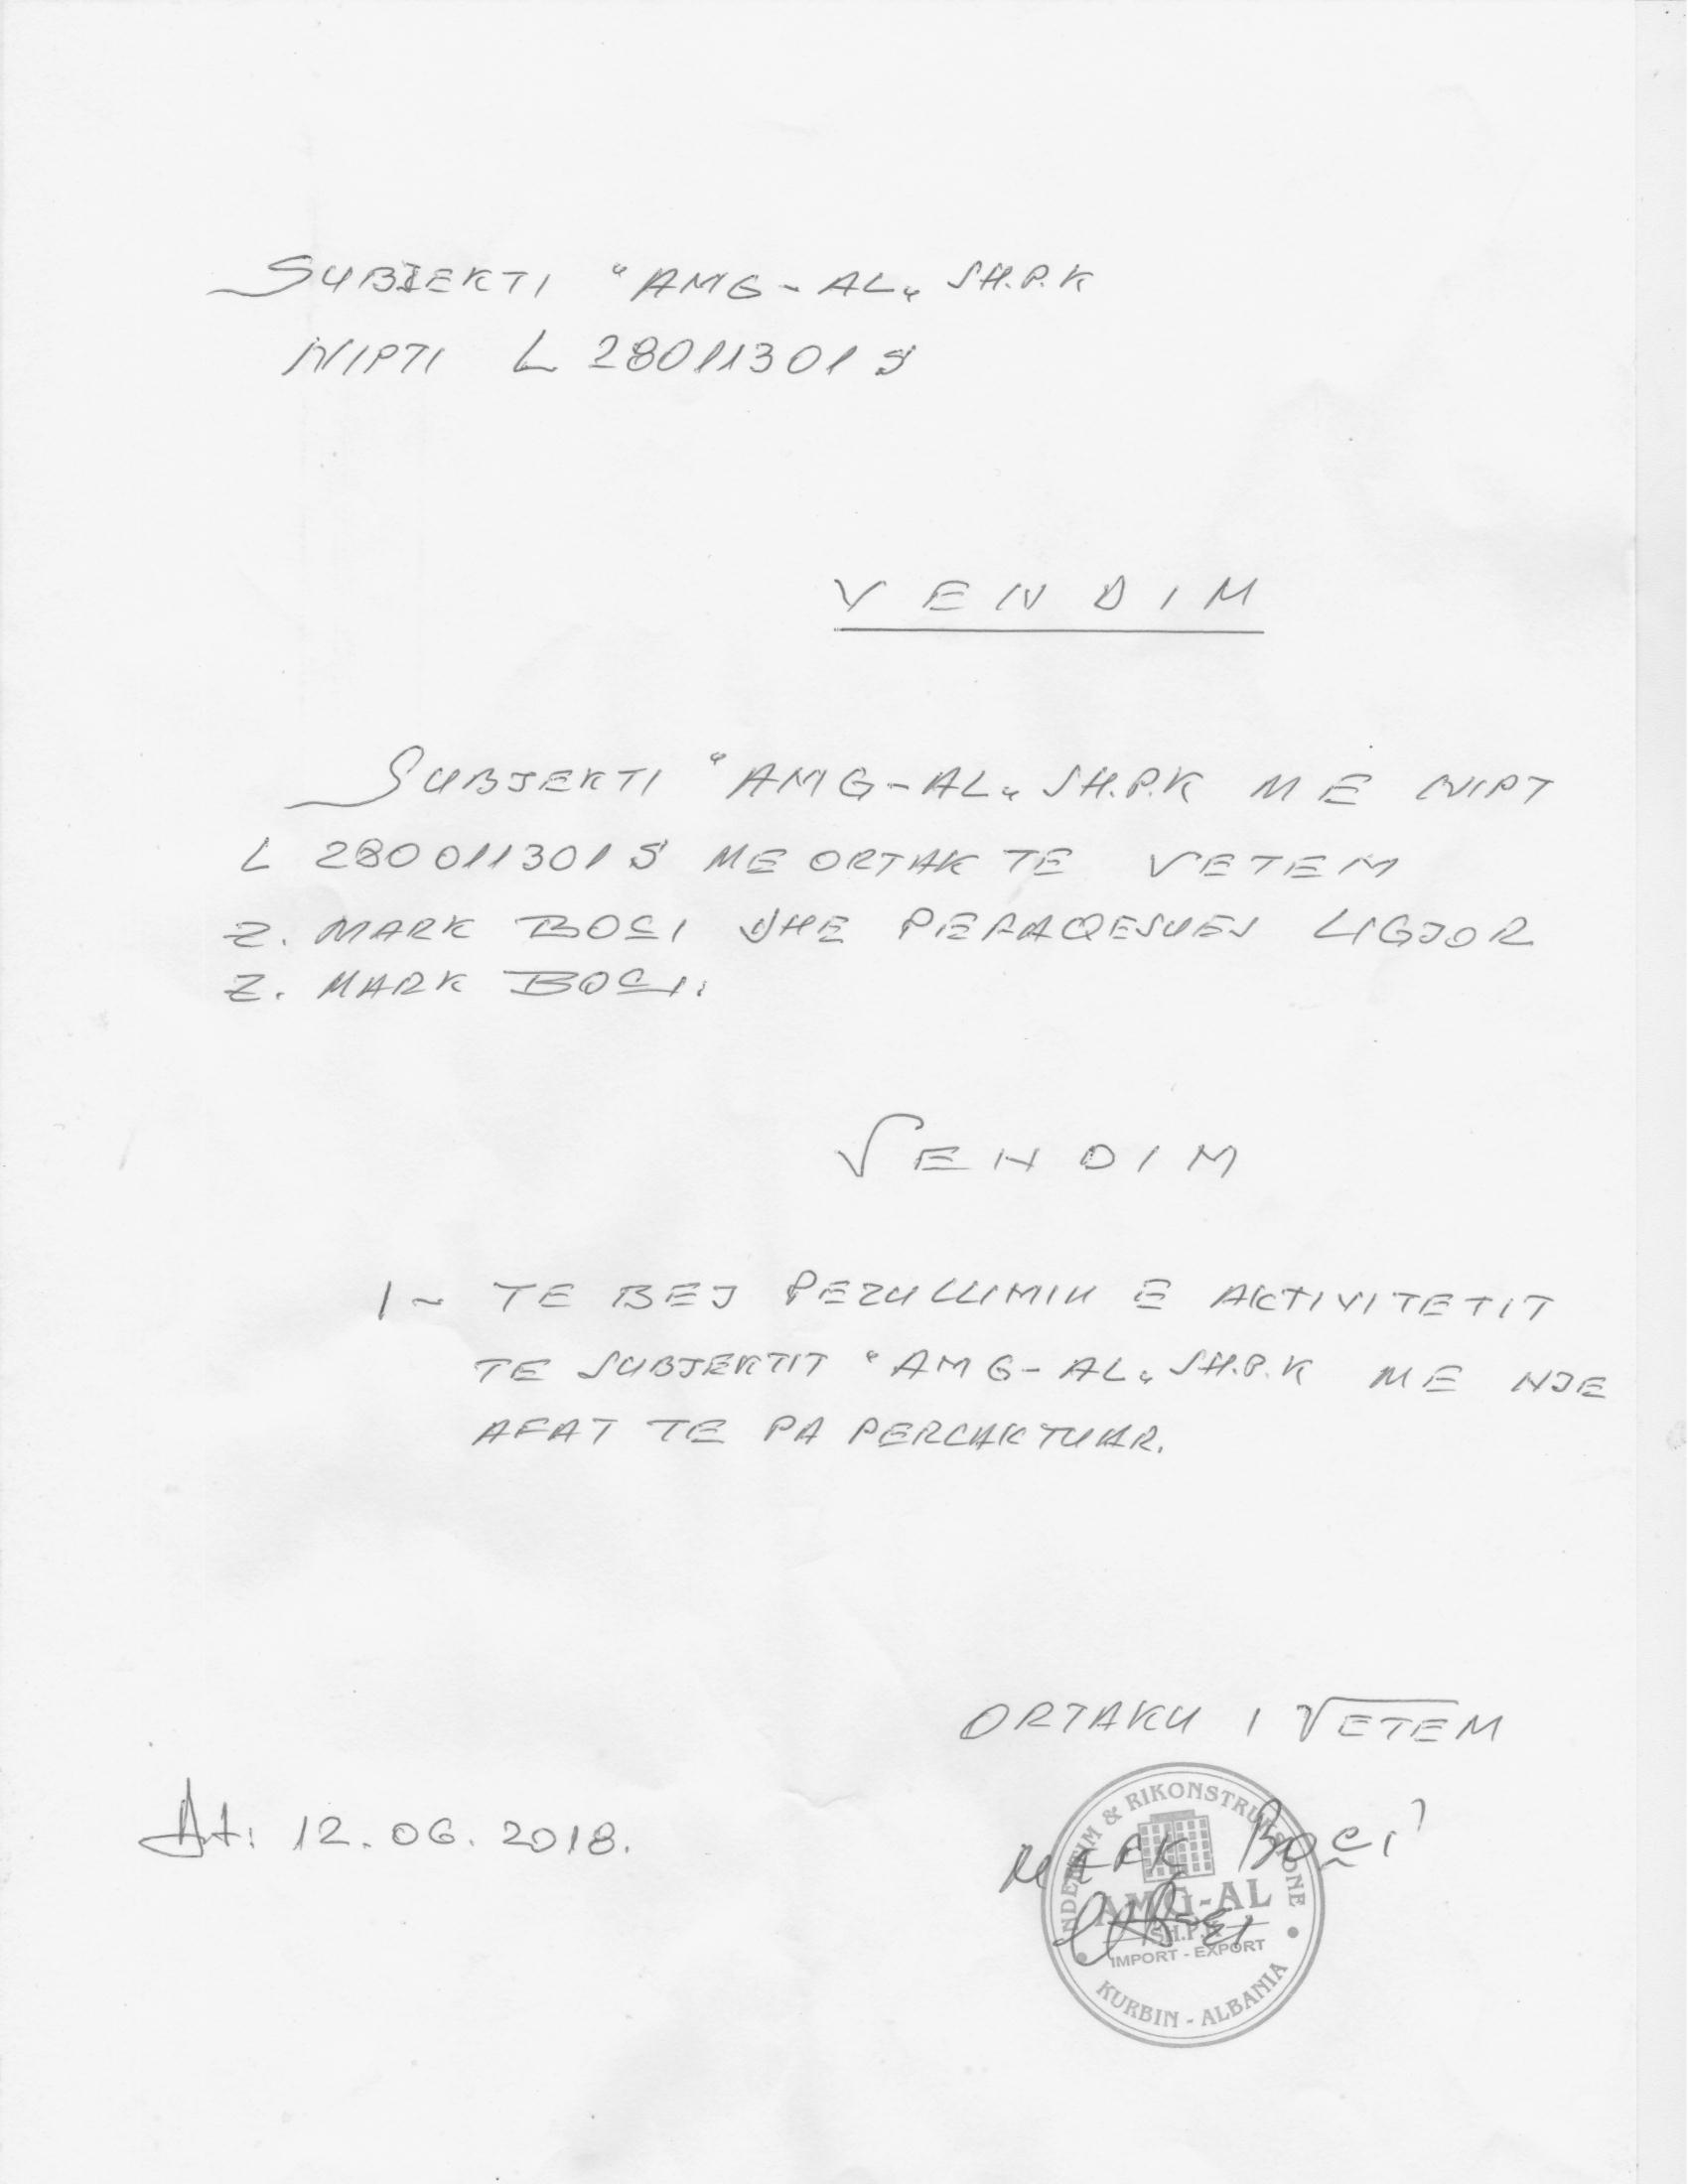 SUBJEKTI "AMG-AL„ SH.P.K
NIPTI L 28011301 S
VENDIM
SUBJEKTI "AMG-AL„ SH.P.K ME NIPT
L 280011301 S ME ORTAK TE VETEM
Z. MARK BOÇI DHE PERAQESUES LIGJOR
Z. MARK BOÇI.
VENDIM
1- TE BEJ PEZULLIMIN E AKTIVITETIT
TE SUBJEKTIT "AMG-AL„ SH.P.K ME NJE
AFAT TE PA PERCAKTUAR.
ORTAKU I VETEM
Dt. 12.06.2018.
MARK BOÇI
NDERTIM & RIKONSTRUKSIONE
AMG-AL
SH.P.K
IMPORT - EXPORT
KURBIN - ALBANIA